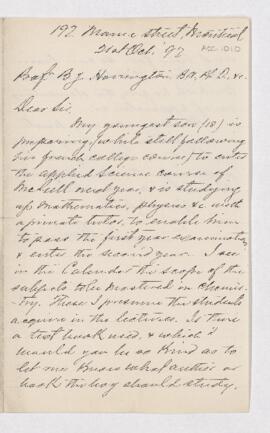 197 Mance street, Montreal
21st Oct. '97
ACC. 1010
Prof. B. J. Harrington BA, Ph.D. &c.
Dear Sir,
My youngest son (18) is
preparing, (while still following
his french college course,) to enter
the applied Science course of
McGill next year, & is studying
up Mathematics, physics &c with
a private tutor, to enable him
to pass the first year examination
& enter the second year. I see
in the Calendar the scope of the
subjects to be mastered in Chemis-
try. These I presume the students
acquire in the lectures. Is there
a text book used, & which?
Would you be so kind as to
let me know what author or
book the boy should study.